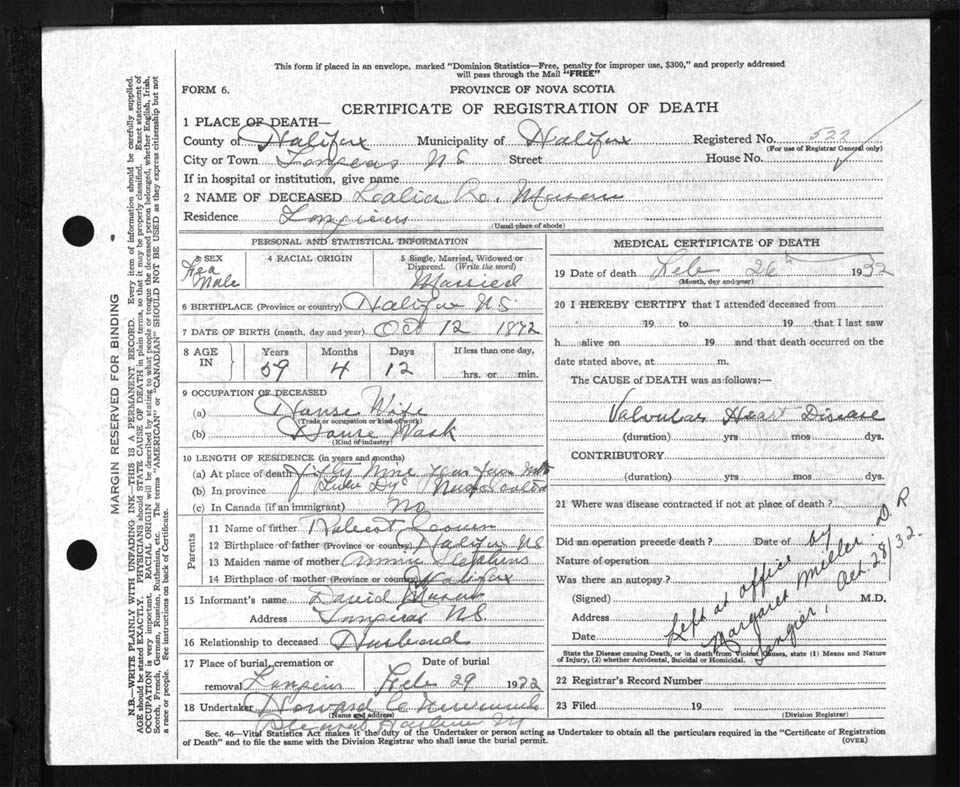 This form if placed in an envelope, marked "Dominion Statistics—Free, penalty for improper use, $300," and properly addressed
will pass through the Mail "FREE"
FORM 6.
PROVINCE OF NOVA SCOTIA
CERTIFICATE OF REGISTRATION OF DEATH
1 PLACE OF DEATH—
County of Halifax Municipality of Halifax Registered No. 522
(For use of Registrar General only)
City or Town N S Street House No.
If in hospital or institution, give name
2 NAME OF DECEASED
Residence
(Usual place of abode)
PERSONAL AND STATISTICAL INFORMATION
3 SEX
Fea
Male
4 RACIAL ORIGIN
5 Single, Married, Widowed or
Divorced. (Write the word)
Married
6 BIRTHPLACE (Province or country) Halifax N S
7 DATE OF BIRTH (month, day and year) Oct 12 1872
8 AGE
IN
Years
59
Months
4
Days
12
If less than one day,
hrs. or min.
9 OCCUPATION OF DECEASED
(a) House Wife
(Trade or occupation or kind of work)
(b) House Wark
(Kind of industry)
10 LENGTH OF RESIDENCE (in years and months)
(a) At place of death Nine
(b) In province
(c) In Canada (if an immigrant) No
Parents
11 Name of father
12 Birthplace of father (Province or country) Halifax NS
13 Maiden name of mother Annie Stephens
14 Birthplace of mother (Province or country) Halifax
15 Informant's name David
Address N.S.
16 Relationship to deceased Husband
17 Place of burial, cremation or
removal
Date of burial
Feb 29 1932
18 Undertaker Howard
(Name and address)
MEDICAL CERTIFICATE OF DEATH
19 Date of death Feb 26 1932
(Month, day and year)
20 I HEREBY CERTIFY that I attended deceased from
19 to 19 that I last saw
h alive on 19 and that death occurred on the
date stated above, at m.
The CAUSE of DEATH was as follows:—
Valvular Heart Disease
(duration) yrs mos dys.
CONTRIBUTORY
(duration) yrs mos dys.
21 Where was disease contracted if not at place of death?
Did an operation precede death? Date of
Nature of operation
Was there an autopsy?
(Signed) M.D.
Address
Date
Left at office by
Margaret Miller D R
Tangier, Oct. 28/32.
State the Disease causing Death, or in death from Violent Causes, state (1) Means and Nature
of Injury, (2) whether Accidental, Suicidal or Homicidal.
22 Registrar's Record Number
23 Filed 19
(Division Registrar)
Sec. 46—Vital Statistics Act makes it the duty of the Undertaker or person acting as Undertaker to obtain all the particulars required in the "Certificate of Registration
of Death" and to file the same with the Division Registrar who shall issue the burial permit.
(OVER)
MARGIN RESERVED FOR BINDING
N.B.—WRITE PLAINLY WITH UNFADING INK—THIS IS A PERMANENT RECORD. Every item of information should be carefully supplied.
AGE should be stated EXACTLY. PHYSICIANS should STATE CAUSE OF DEATH in plain terms, so that it may be properly classified. Exact statement of
OCCUPATION is very important. RACIAL ORIGIN will be described by stating to what people or tongue the deceased person belonged, whether English, Irish,
Scotch, French, German, Russian, Ruthenian, etc. The terms "AMERICAN" or "CANADIAN" SHOULD NOT BE USED as they express citizenship but not
a race or people. See instructions on back of Certificate.